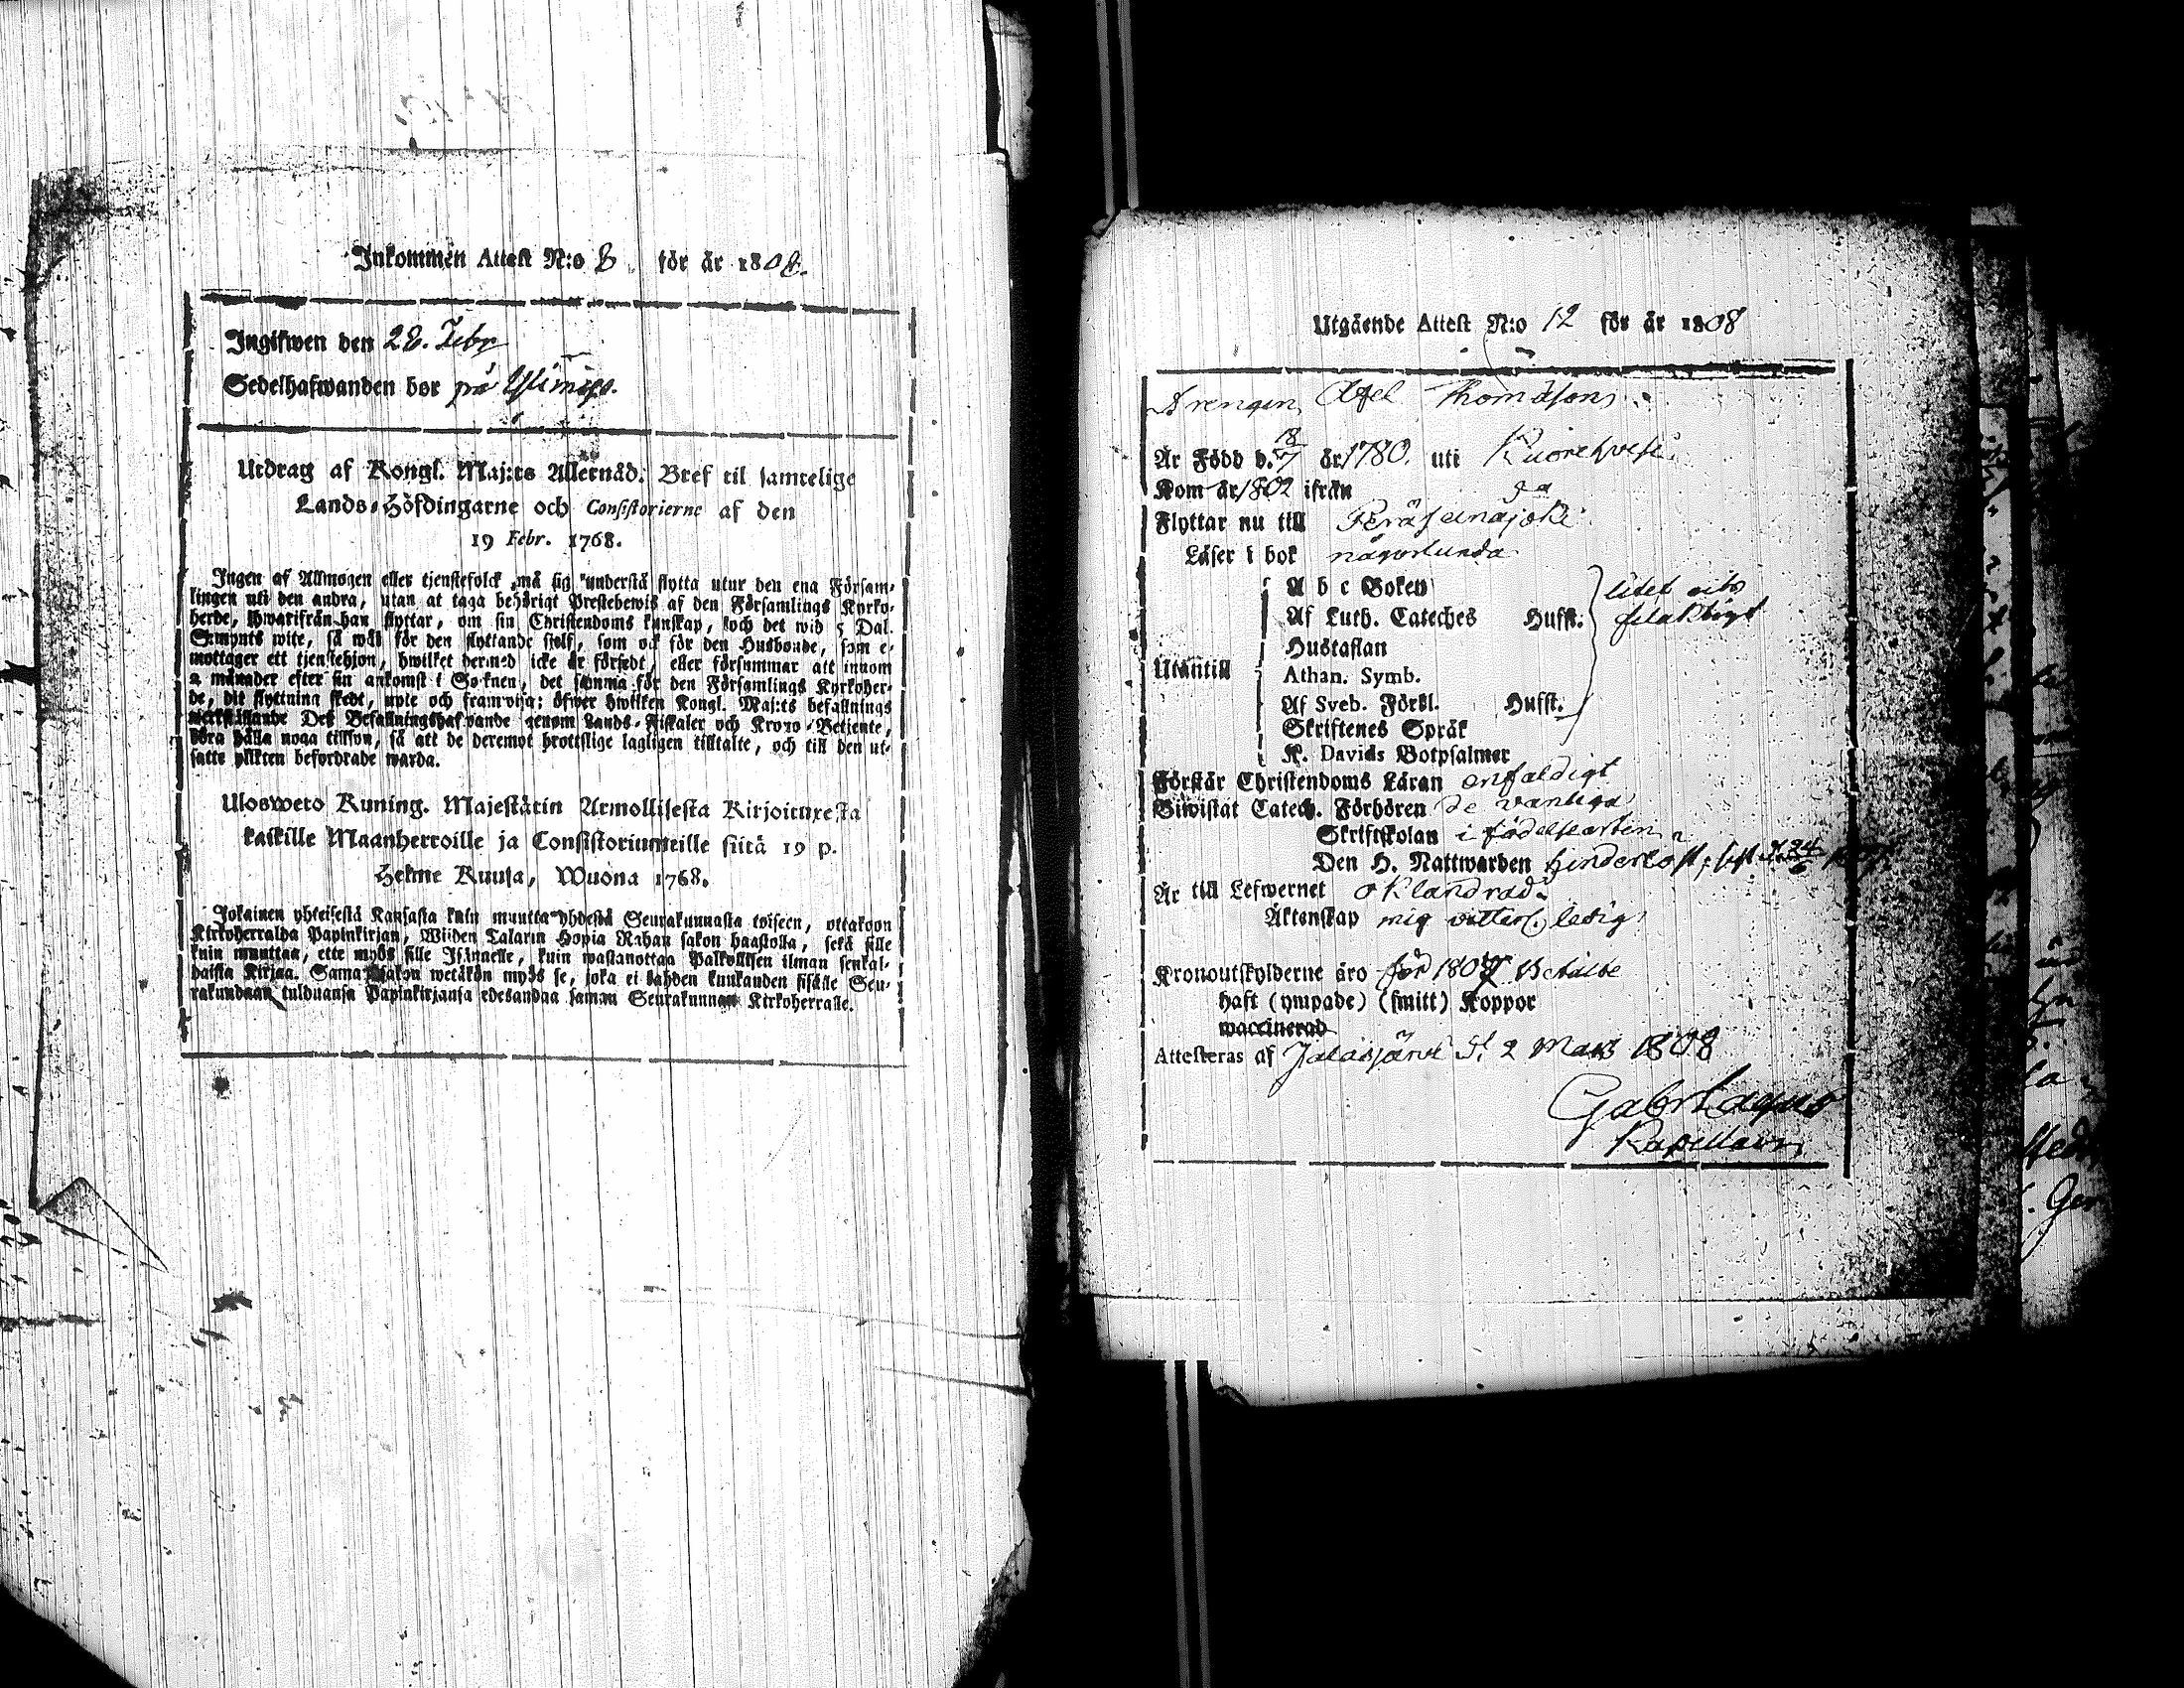 Inkommen Attest N:o 8 för är 1808.
Ingifwen den 28. Febr
Sedelhafwanden bor på
Utdrag af Kongl. Maj:ts Allernåd. Bref til samtelige
Lands-Höfdingarne och Consistorierne af den
19 Febr. 1768.
Ingen af Allmogen eller tjenstefolck må sig understå flytta utur den ena Försam-
lingen uti den andra, utan at taga behörigt Prestebewis af den Församlings Kyrko-
herde, hwarifrån han flyttar, om sin Christendoms kunskap, och det wid 5 Dal.
S:mynts wite, så wäl för den flyttande sjelf, som ock för den Husbonde, som e-
mottager ett tjenstehjon, hwilket dermed icke är försedt, eller försummar att innom
2 månader efter sin ankomst i Socknen, det samma för den Församlings Kyrkoher-
de, dit flyttning skedt, upte och framwisa; öfwer hwilken Kongl. Maj:ts befallnings
werkställande Des Befallningshafwande genom Lands-Fiskaler och Krono-Betjente,
böra hålla noga tillsyn, så att de deremot brottslige lagligen tilltalte, och till den ut-
satte plikten befordrade warda.
Ulosweto Kuning. Majestätin Armollisesta Kirjoituxesta
kaikille Maanherroille ja Consistoriumeille siitä 19 p.
Helme Kuusa, Wuona 1768.
Jokainen yhteisestä Kansasta kuin muutta yhdestä Seurakunnasta toiseen, ottakoon
Kirkoherralda Papinkirjan, Wiiden Talarin Hopia Rahan sakon haastolla, sekä sille
kuin muuttaa, ette myös sille Isännelle, kuin wastanottaa Palkollisen ilman senkal-
daista Kirjaa. Saman sakon wetäkön myös se, joka ei kahden kuukauden sisälle Seu-
rakundaan tulduansa Papinkirjansa edesandaa saman Seurakunnan Kirkoherralle.
Utgående Attest N:o 12 för är 1808
Drengen Axel Thomasson
Är Född d. 18/7 år 1780. uti Kuorehvesi
Kom år 1802 ifrån
Flyttar nu till Peräseinäjoki
Läser i bok någorlunda
Utantill
A b c Boken
Af Luth. Cateches Husst.
Hustaflan
Athan. Symb.
Af Sveb. Förkl. Husst.
Skriftenes Språk
K. Davids Botpsalmer
litet och
felaktigt
Förstår Christendoms Läran enfaldigt
Biwistat Catech. Förhören de vanliga
Skriftskolan i födelseorten
Den H. Nattwarden hinderlöst, sist d. 24/6
Är till Lefwernet oklandrad
Äktenskap mig vitterl. ledig
Kronoutskylderne äro för 1807 betalte
haft (ympade) (smitt) Koppor
waccinerad
Attesteras af Jalasjärvi d. 2 Mars 1808
Gabr Lagus
Kapellan